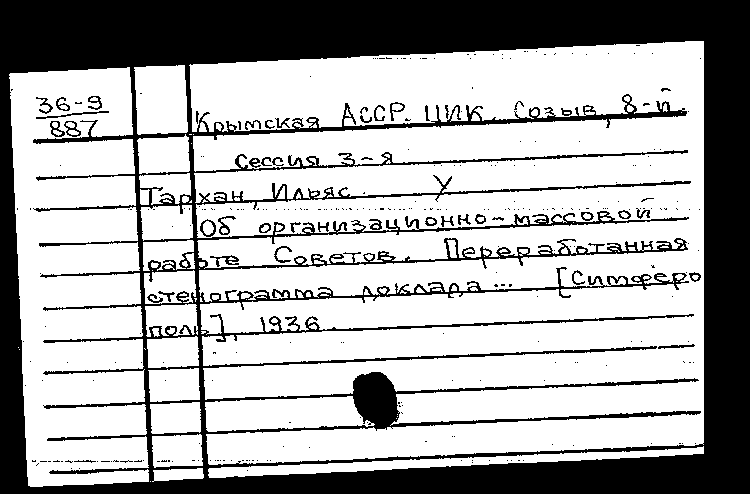 36-9
887
Крымская АССР. ЦИК. Созыв, 8-й.
Сессия 3-я
Тархан, Ильяс. У
Об организационно-массовой
работе Советов. Переработанная
стенограмма доклада... [Симферо
поль], 1936.